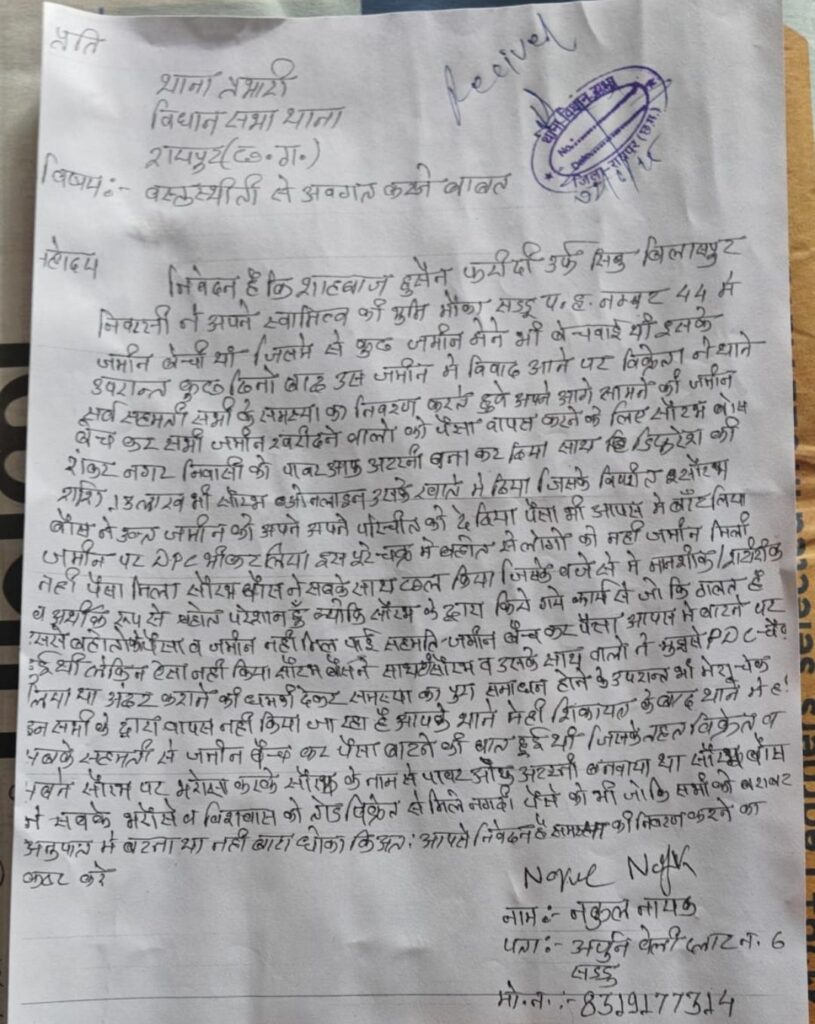 प्रति
थाना प्रभारी
विधान सभा थाना
रायपुर (छ.ग.)
Recived
थाना विधान सभा
जिला-रायपुर (छ.ग.)
विषय:- वस्तुस्थीती से अवगत कराने बाबत
महोदय
निवेदन है कि शाहबाज हुसैन फरीदी उर्फ सिबु बिलासपुर
निवासी ने अपने स्वामित्व की भुमि मौका सड्डु प.ह. नम्बर 44 मे
जमीन बेची थी जिसमे से कुछ जमीन मैने भी बेचवाई थी इसके
उपरान्त कुछ दिनो बाद उस जमीन मे विवाद आने पर विक्रेता ने थाने
सर्व सहमती सभी के समस्या का निवरण करते हुवे अपने आगे सामने की जमीन
बेच कर सभी जमीन खरीदने वालो को पैसा वापस करने के लिए सौरभ बोस
शंकर नगर निवासी को पावर आफ अटरनी बना कर दिया साथ हि डिफरेश की
राशि लाख भी सौरभ को ओनलाइन उसके खाते मे दिया जिसके विपरीत सौरभ
बोस ने उक्त जमीन को अपने अपने परिचीत को दे दिया पैसा भी आपस मे बाँट लिया
जमीन पर DPC भी कर लिया इस पुरे चक्र मे बहोत से लोगो को नही जमीन मिली
नही पैसा मिला सौरभ बोस ने सबके साथ छल किया जिसके वजे से मे मानशीक/शारीरीक
व आर्थीक रूप से बहोत परेशान हुँ क्योकि सौरभ के द्वारा किये गये कार्य से जो कि गलत है
बहोतो के पैसा व जमीन नही मिल पाई सहमति जमीन बेच कर पैसा आपस मे बाटने पर
हुई थी लेकिन ऐसा नही किया सौरभ बोस ने साथ ही सौरभ व उसके साथ वालो ने मुझसे PDC-चैक
लिया था अंदर कराने की धमकी देकर समस्या का पुरा समाधान होने के उपरान्त भी मेरा चेक
इन सभी के द्वारा वापस नही किया जा रहा है आपके थाने मे ही शिकायत के बाद थाने मे ही
सबके सहमती से जमीन बेच कर पैसा बाटने की बात हुई थी जिसके तहत विक्रेता व
सबने सौरभ पर भरोसा करके सौरभ के नाम से पावर ऑफ अटरनी बनवाया था सौरभ बोस
ने सबके भरोसे व विशवास को तोड विक्रेता से मिले नगदी पैसे को भी जो कि सभी को बराबर
अनुपात मे बाटना था नही बाटा धोका कि अत: आपसे निवेदन है समस्या की निवरण करने का
कष्ट करे
नाम:- नकुल नायक
पता:- अर्जुन वेली प्लाट न. 6
सड्डु
मो.न.:- 8319177314